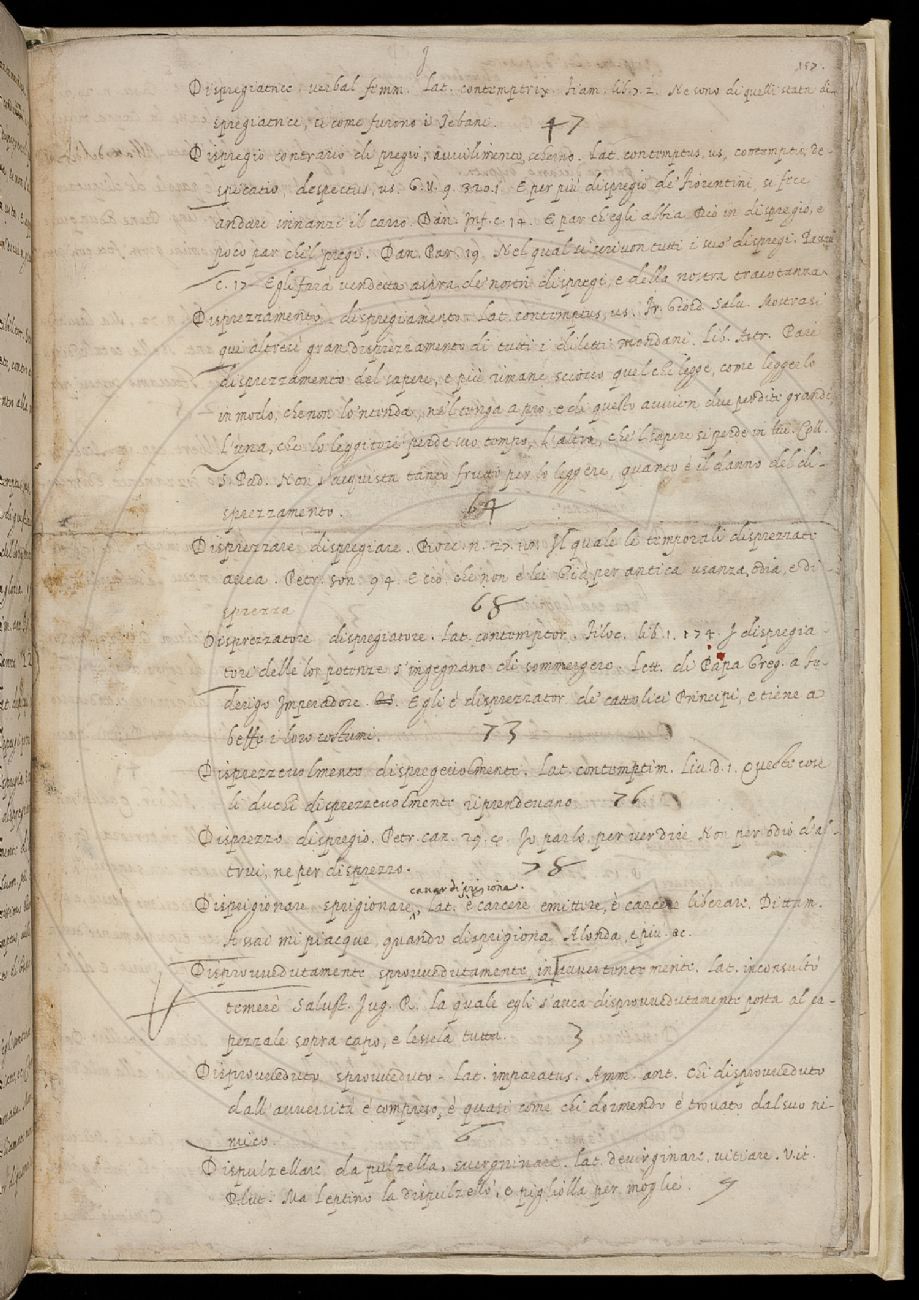 157.
Dispregiatrice verbal femm. Lat. contemptrix. Fiam. lib. 7. 2. Ne sono di quelli stata di-
spregiatrice, si come furono i Tebani. 47
Dispregio contrario di pregio, avvilimento, scherno. Lat. contemptus, us, contemptio, de-
spicatio, despectus, us. G. V. 9. 320. 1. E per più dispregio de' Fiorentini, si fece
andare innanzi il carro. Dan. Inf. c. 14. E par ch'egli abbia Dio in dispregio, e
poco par ch'il pregi. Dan. Par. 19. Nel qual si scrivon tutti i suo' dispregi.
c. 17. Egli farà vendetta aspra de nostri dispregi, e della nostra tracotanza
Disprezzamento. dispregiamento. Lat. contemptus, us. Fr. Giord. Salu. Mostrasi
qui altresì gran disprezzamento di tutti i diletti mondani. Lib. Astr. Pare
disprezzamento del sapere, e più rimane sciocco quel che legge, come leggerlo
in modo, che non lo 'ntenda, nè 'l tenga a pro, e da questo avvien due perdite grandi,
L'una, che lo leggitore perde suo tempo, L'altra, che 'l sapere si perde in lui. Coll.
S. Pad. Non s'acquista tanto frutto per lo leggere, quanto è il danno del di-
sprezzamento. 64
Disprezzare dispregiare. Bocc. n. 27. Il quale le temporali disprezzate
avea. Petr. son. 94. E ciò, che non è lei Già per antica usanza, odia, e di-
sprezza 68
Disprezzatore dispregiatore. Lat. contemptor. Filoc. lib. 1. 174. I dispregia-
tori delle lor potenze s'ingegnano di sommergere. Lett. di Papa Greg. a Fe-
derigo Imperadore. Egli è disprezzator de' cattolici Principi, e tiene a
beffe i loro costumi. 73
Disprezzevolmente dispregevolmente. Lat. contemptim. Liu. d. 1. Queste cose
li duchi disprezzevolmente riprendevano 76
Disprezzo dispregio. Petr. can. 29. 4. Io parlo per ver dire Non per odio d'al-
trui, ne per disprezzo. 78
cavar di prigione.
Disprigionare sprigionare, Lat. è carcere emittere, è carcere liberare. Dittam.
Assai mi piacque, quando disprigiona Alonda, e più &c.
Disprovvedutamente sprovvedutamente, inavvertentemente. Lat. inconsultò
temerè Salust. Jug. R. La quale egli s'avea disprovvedutamente posta al ca-
pezzale sopra capo, e lessela tutta. 3
Disprovveduto. sprovveduto. Lat. imparatus. Amm. ant. Chi disprovveduto
dall'avversità è compreso, è quasi come chi dormendo è trovato dal suo ni-
mico. 6
Dispulzellare da pulzella, svergninare. lat. devirginare, vitiare. Vit.
Plut. Ma Leptino la dispulzellò, e pigliolla per moglie. 9